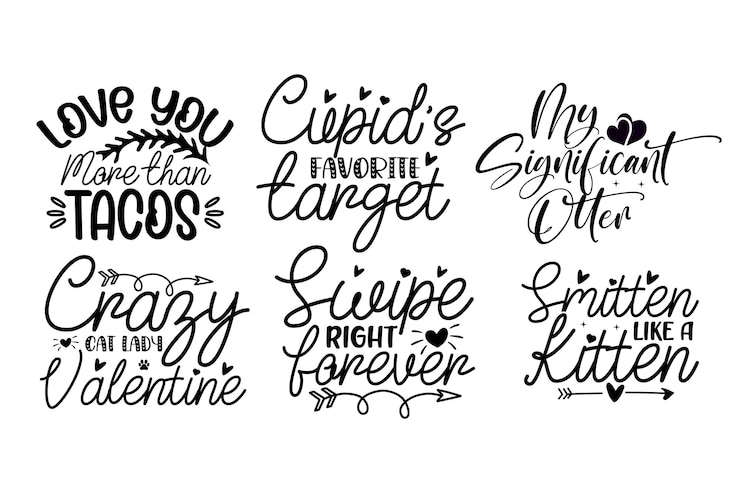 LOVE YOU
More than
TACOS
Cupid's
FAVORITE
target
My
Significant
Otter
Crazy
CAT LADY
Valentine
Swipe
RIGHT
forever
Smitten
LIKE A
Kitten